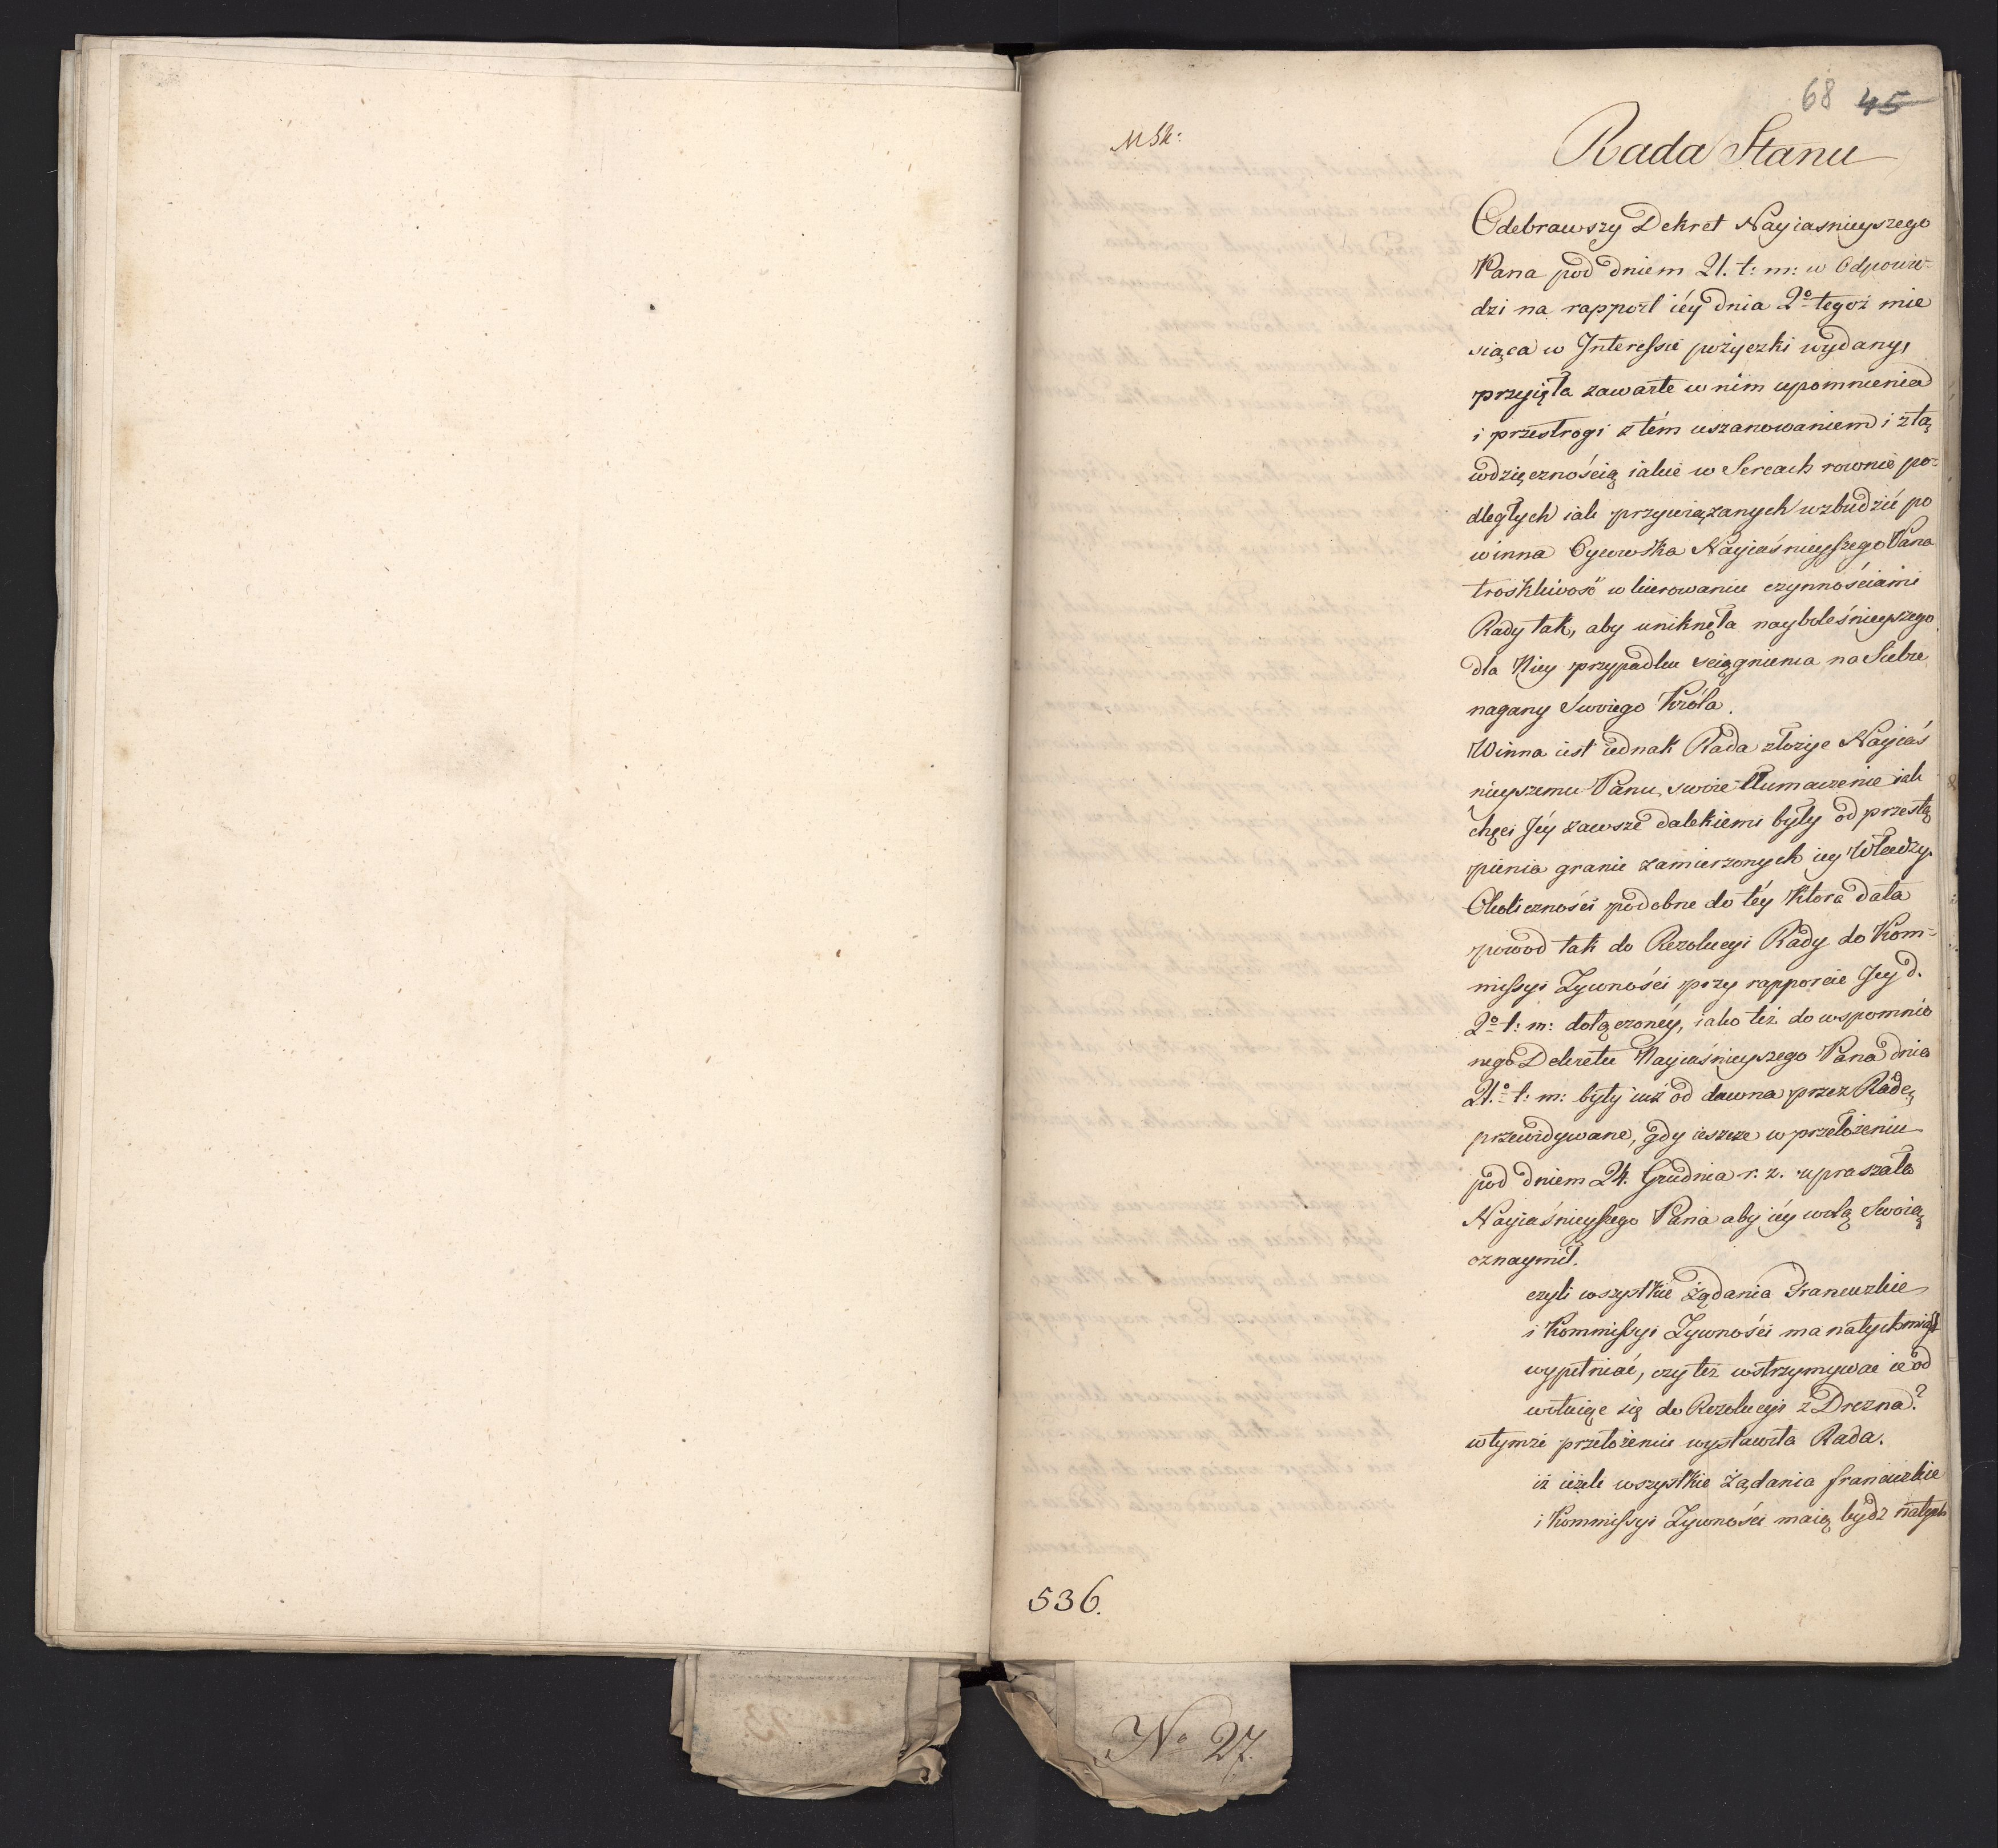 68 45
Rada Stanu
Odebrawszy Dekret Nayiasnieyszego
Pana pod dniem 21. t: m: w Odpowie-
dzi na rapport iéy dnia 2º tegoż mie
siąca w Interessie pożyczki wydany,
przyięła zawarte w nim upomnienia
i przestrogi z tém uszanowaniem i z tą
wdzięcznością iakie w Sercach rownie po-
dległych iak przywiązanych wzbudzić po
winna Oycowska Nayiaśnieyszego Pana
troskliwość w kierowaniu czynnościami
Rady tak, aby uniknęła nayboleśnieyszego
dla Niey przypadku sciągnienia na Siebie
nagany Swoiego Króla.
Winna iest iednak Rada złożyc Nayiaś
nieyszemu Panu, swoie tłumaczenie iak
chęci Jéy zawsze dalekiemi były od przestą
pienia granic zamierzonych iey Władzy.
Okoliczności podobne do téy ktora dała
powod tak do Rezolucyi Rady do Kom-
missyi Zywności przy rapporcie Jey d.
2º t: m: dołączonéy, iako też do wspomnio
nego Dekretu Nayiaśnieyszego Pana dnia
21.º t: m: były iuż od dawna przez Radę
przewidywane, gdy ieszcze w przełożeniu
pod dniem 24. Grudnia r. z. upraszała
Nayiaśnieyszego Pana aby iéy wolą Swoią
oznaymił.
czyli wszystkie żądania Francuzkie
i Kommissyi Zywności ma natychmiast
wypełniać, czy też wstrzymywac ie od
wołuiąc się do Rezolucyi z Drezna?
w tymże przełożeniu wystawiła Rada.
iż ieżeli wszystkie żądania francuzkie
i Kommissyi Zywności maią bydz natych
536.
Nº 27.